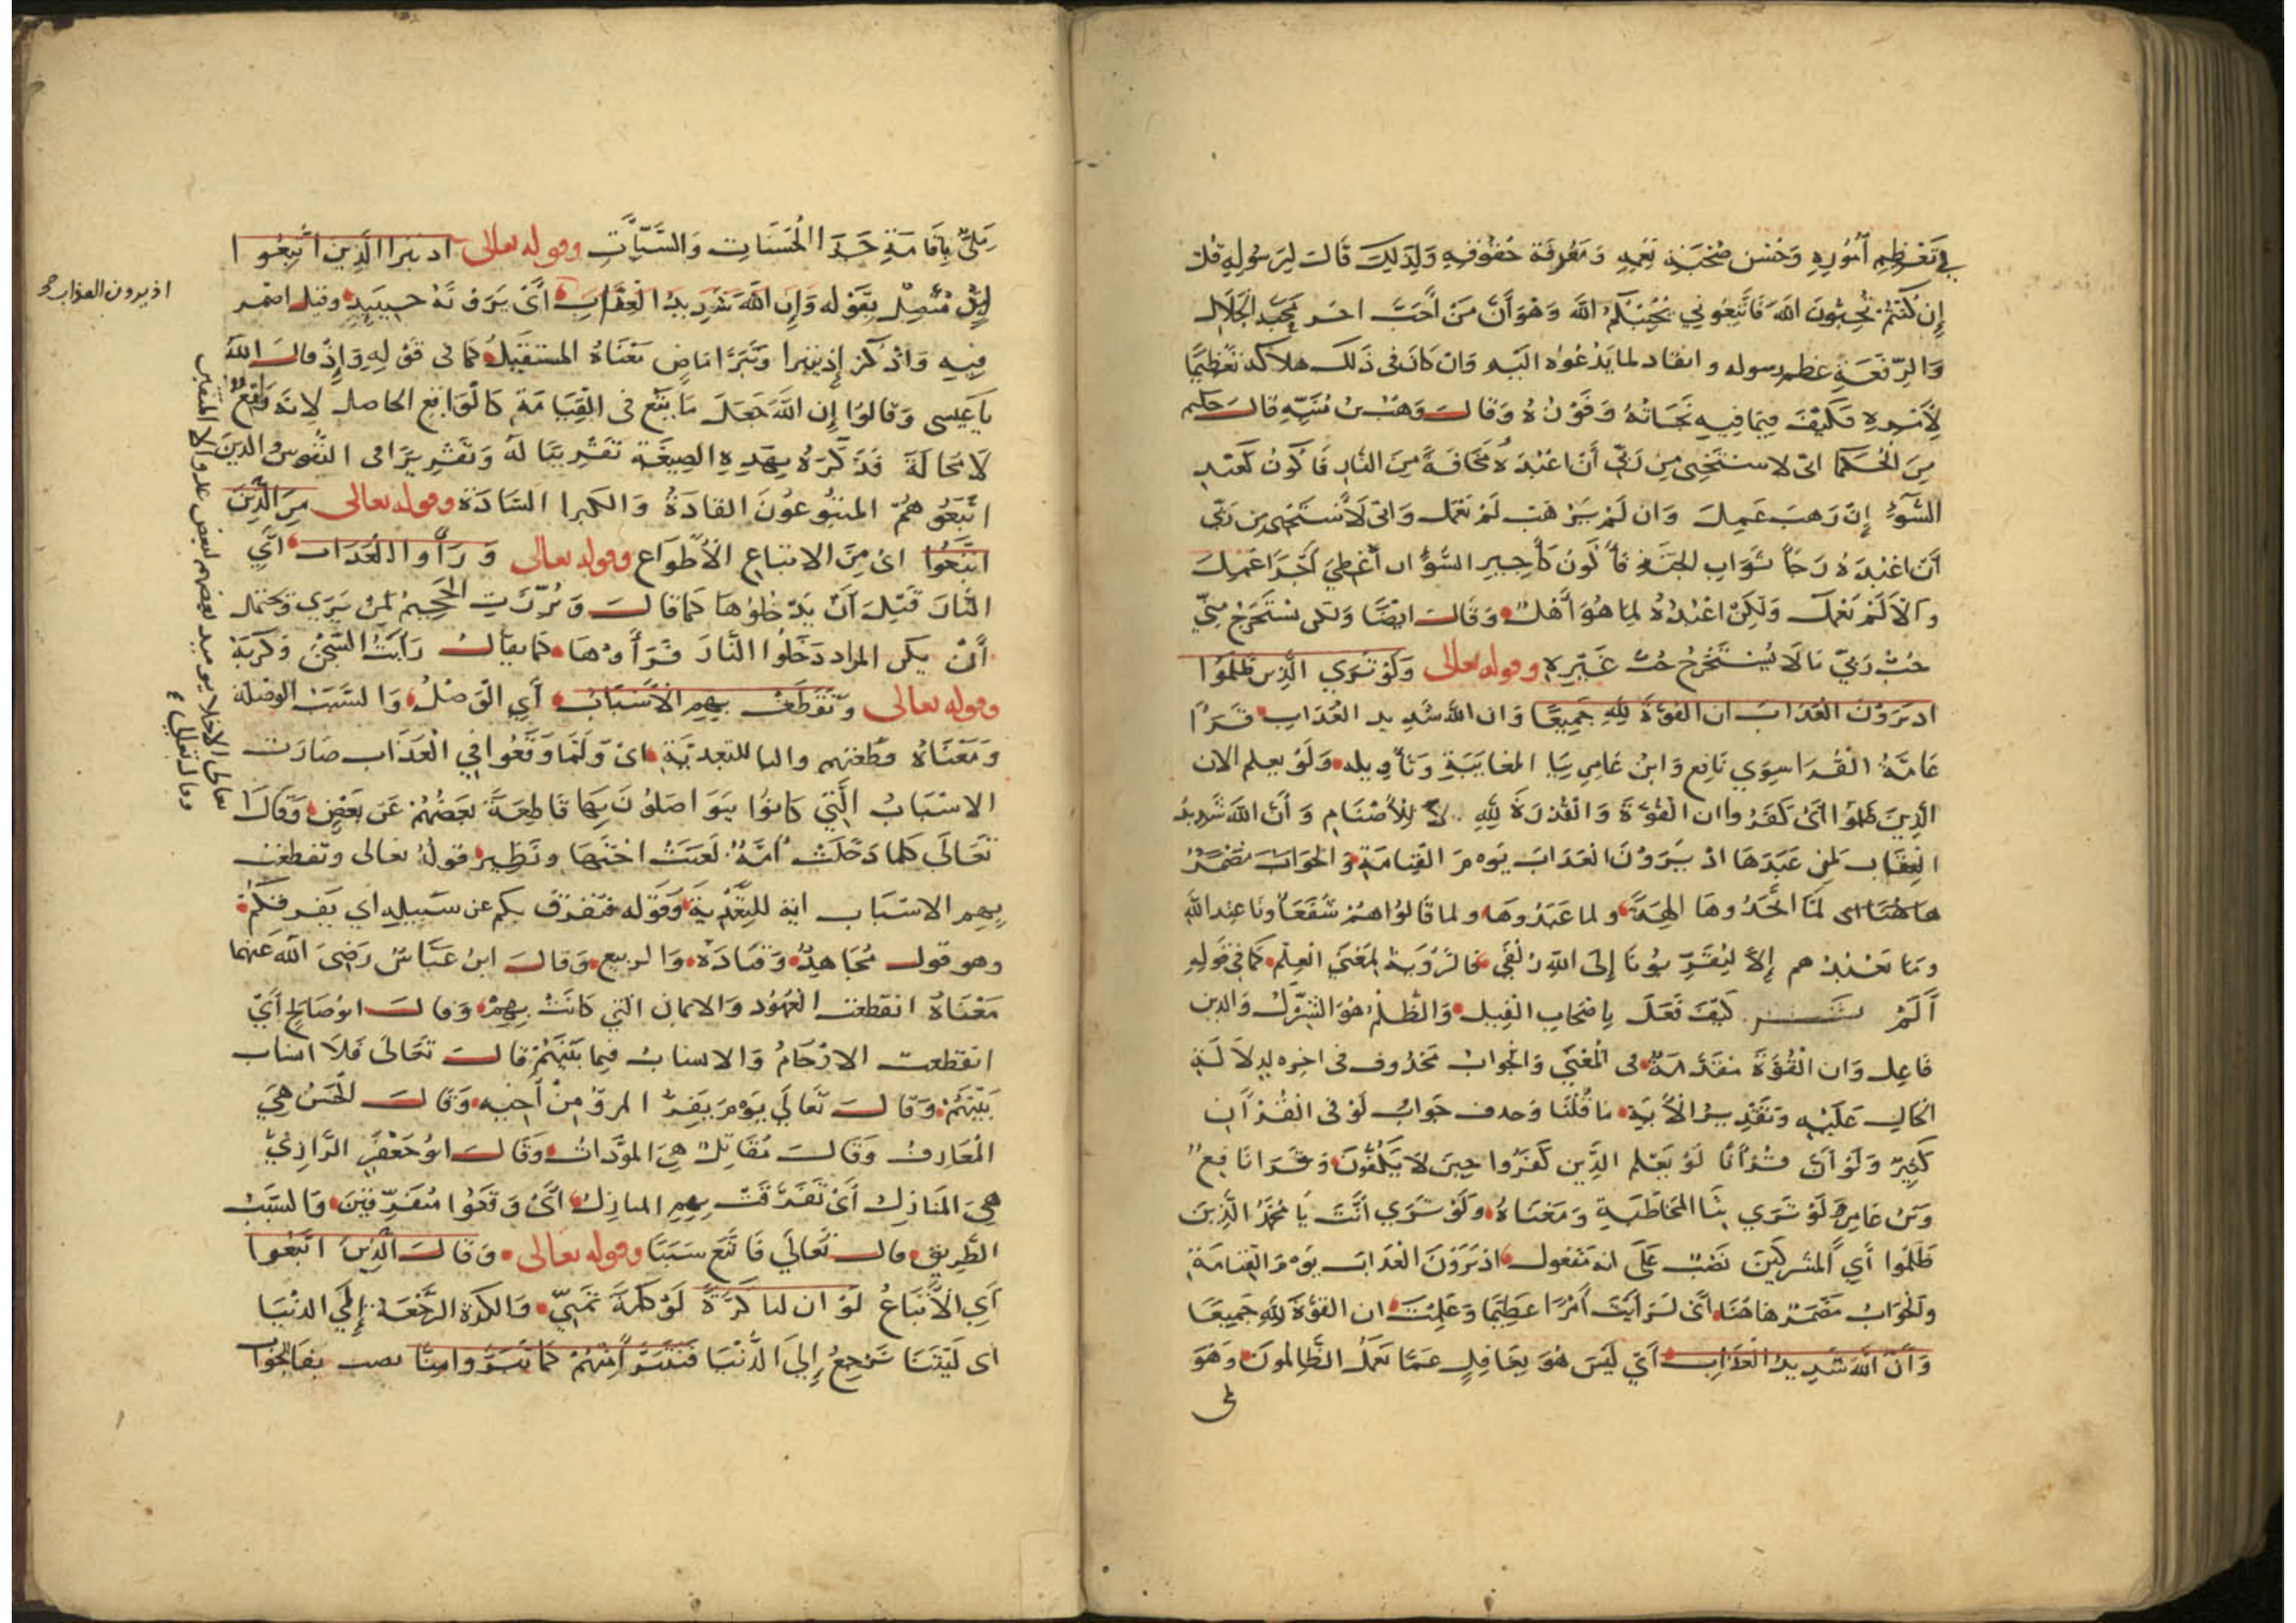 في تعظيم اموره وحسن صحبة نعمه ومعرفة حقوقه ولذلك قال لرسوله قل
إن كنتم تحبون الله فاتبعوني يحببكم الله وهو أن من أحب اخر يجب الجلال
والرفعة عظم رسوله وانقاد لما يدعوه اليه وان كان في ذلك هلاكه تعظيما
لأمره فكيف فيما فيه نجاته وفوزه وقال وهب بن منبه قال حكيم
من الحكما اني لاستحيي من ربي أن اعبده مخافة من النار فاكون كعبد
السوء إن رهب عمل وان لم يرهب لم يعمل واني لاستحيي من ربي
أن اعبده رجا ثواب الجنة فأكون كأجير السوء ان أعطي أجرا عمل
والا لم يعمل ولكن اعبده لما هو أهله وقال ايضا ولكن يستخرج مني
حب ربي ما لا يستخرج حب غيره وقوله تعالى ولو ترى الذين ظلموا
اذ يرون العذاب ان القوة لله جميعا وان الله شديد العذاب قرأ
عامة القرا سوى نافع وابن عامر بيا المغايبة وتأويله ولو يعلم الان
الذين ظلموا اى كفروا ان القوة والقدرة لله لا للأصنام وأن الله شديد
العقاب لمن عبدها اذ يرون العذاب يوم القيامة والجواب مضمر
هاهنا اى لما اتخذوها الهة ولما عبدوها ولما قالوا هم شفعاونا عند الله
وما نعبدهم إلا ليقربونا إلى الله زلفى فالرؤية بمعنى العلم كما في قوله
ألم تر كيف فعل باصحاب الفيل والظلم هو الشرك والذين
فاعل وان القوة متقدمة في المعنى والجواب محذوف في اخره لدلالة
الحال عليه وتقدير الأية ما قلنا وحذف جواب لو في القرآن
كثير ولو أن قرأنا لو يعلم الذين كفروا حين لا يكفون وقرا نافع
وبن عامر ولو ترى بتا المخاطبة ومعناه ولو ترى أنت يا محمد الذين
ظلموا أي المشركين نصب على انه مفعول اذ يرون العذاب يوم القيامة
والجواب مضمر هاهنا أي لرأيت أمرا عظيما وعلمت ان القوة لله جميعا
وأن الله شديد العذاب أي ليس هو بغافل عما يعمل الظالمون وهو
ملى بإقامة جزا الحسنات والسيات وقوله تعالى اذ تبرا الذين اتبعوا
متصل بقوله وإن الله شديد العقاب أي يرونه حينيذ وقيل اضمر
فيه واذكر إذ يتبرا وتبرا ماض معناه المستقبل كما في قوله وإذ قال الله
يا عيسى وقالوا إن الله جعل ما يقع في القيامة كالواقع الحاصل لانه واقع
لا محالة فذكره بهذه الصيغة تقريبا له وتقريرا في النفوس والذين
اتبعوهم المتبوعون القادة والكبرا السادة وقوله تعالى من الذين
اتبعوا اى من الاتباع الأطواع وقوله تعالى ورأوا العذاب أي
النار قبل أن يدخلوها كما قال وبرزت الجحيم لمن يرى ويحتمل
أن يكن المراد دخلوا النار فرأوها كما يقال رأيت السجن وكربة
وقوله تعالى وتقطعت بهم الأسباب أي الوصل والسبب الوصلة
ومعناه قطعتهم والبا للتعدية اى ولما وقعوا في العذاب صارت
الاسباب التي كانوا يتواصلون بها قاطعة بعضهم عن بعض وقال
تعالى كلما دخلت أمة لعنت اختها ونظير قوله تعالى وتقطعت
بهم الاسباب انه للتعدية وقوله فتفرق بكم عن سبيله اي يفرقكم
وهو قول مجاهد وقتادة والربيع وقال ابن عباس رضي الله عنهما
معناه انقطعت العهود والايمان التي كانت بهم وقال ابو صالح أي
انقطعت الارحام والانساب فيما بينهم قال تعالى فلا انساب
بينهم وقال تعالى يوم يفر المرؤ من أخيه وقال الحسن هي
المعارف وقال مقاتل هي المودات وقال ابو جعفر الرازي
هي المنازل أي تفرقت بهم المنازل أي وقعوا متفرقين والسبب
الطريق قال تعالى فاتبع سببا وقوله تعالى وقال الذين اتبعوا
أي الأتباع لو ان لنا كرة لو كلمة تمني والكرة الرجعة إلى الدنيا
اى ليتنا نرجع إلى الدنيا فنتبرأ منهم كما تبروا منا نصب بفا الجواب
اذ يرون العذاب
تعالى الاخلا يوميذ بعضهم لبعض عدو الا المتقين
وقال تعالى